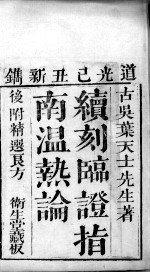 道光己丑新鐫
古吳葉天士先生著
續刻臨證指
南温熱論
後附精選良方
衞生堂藏板